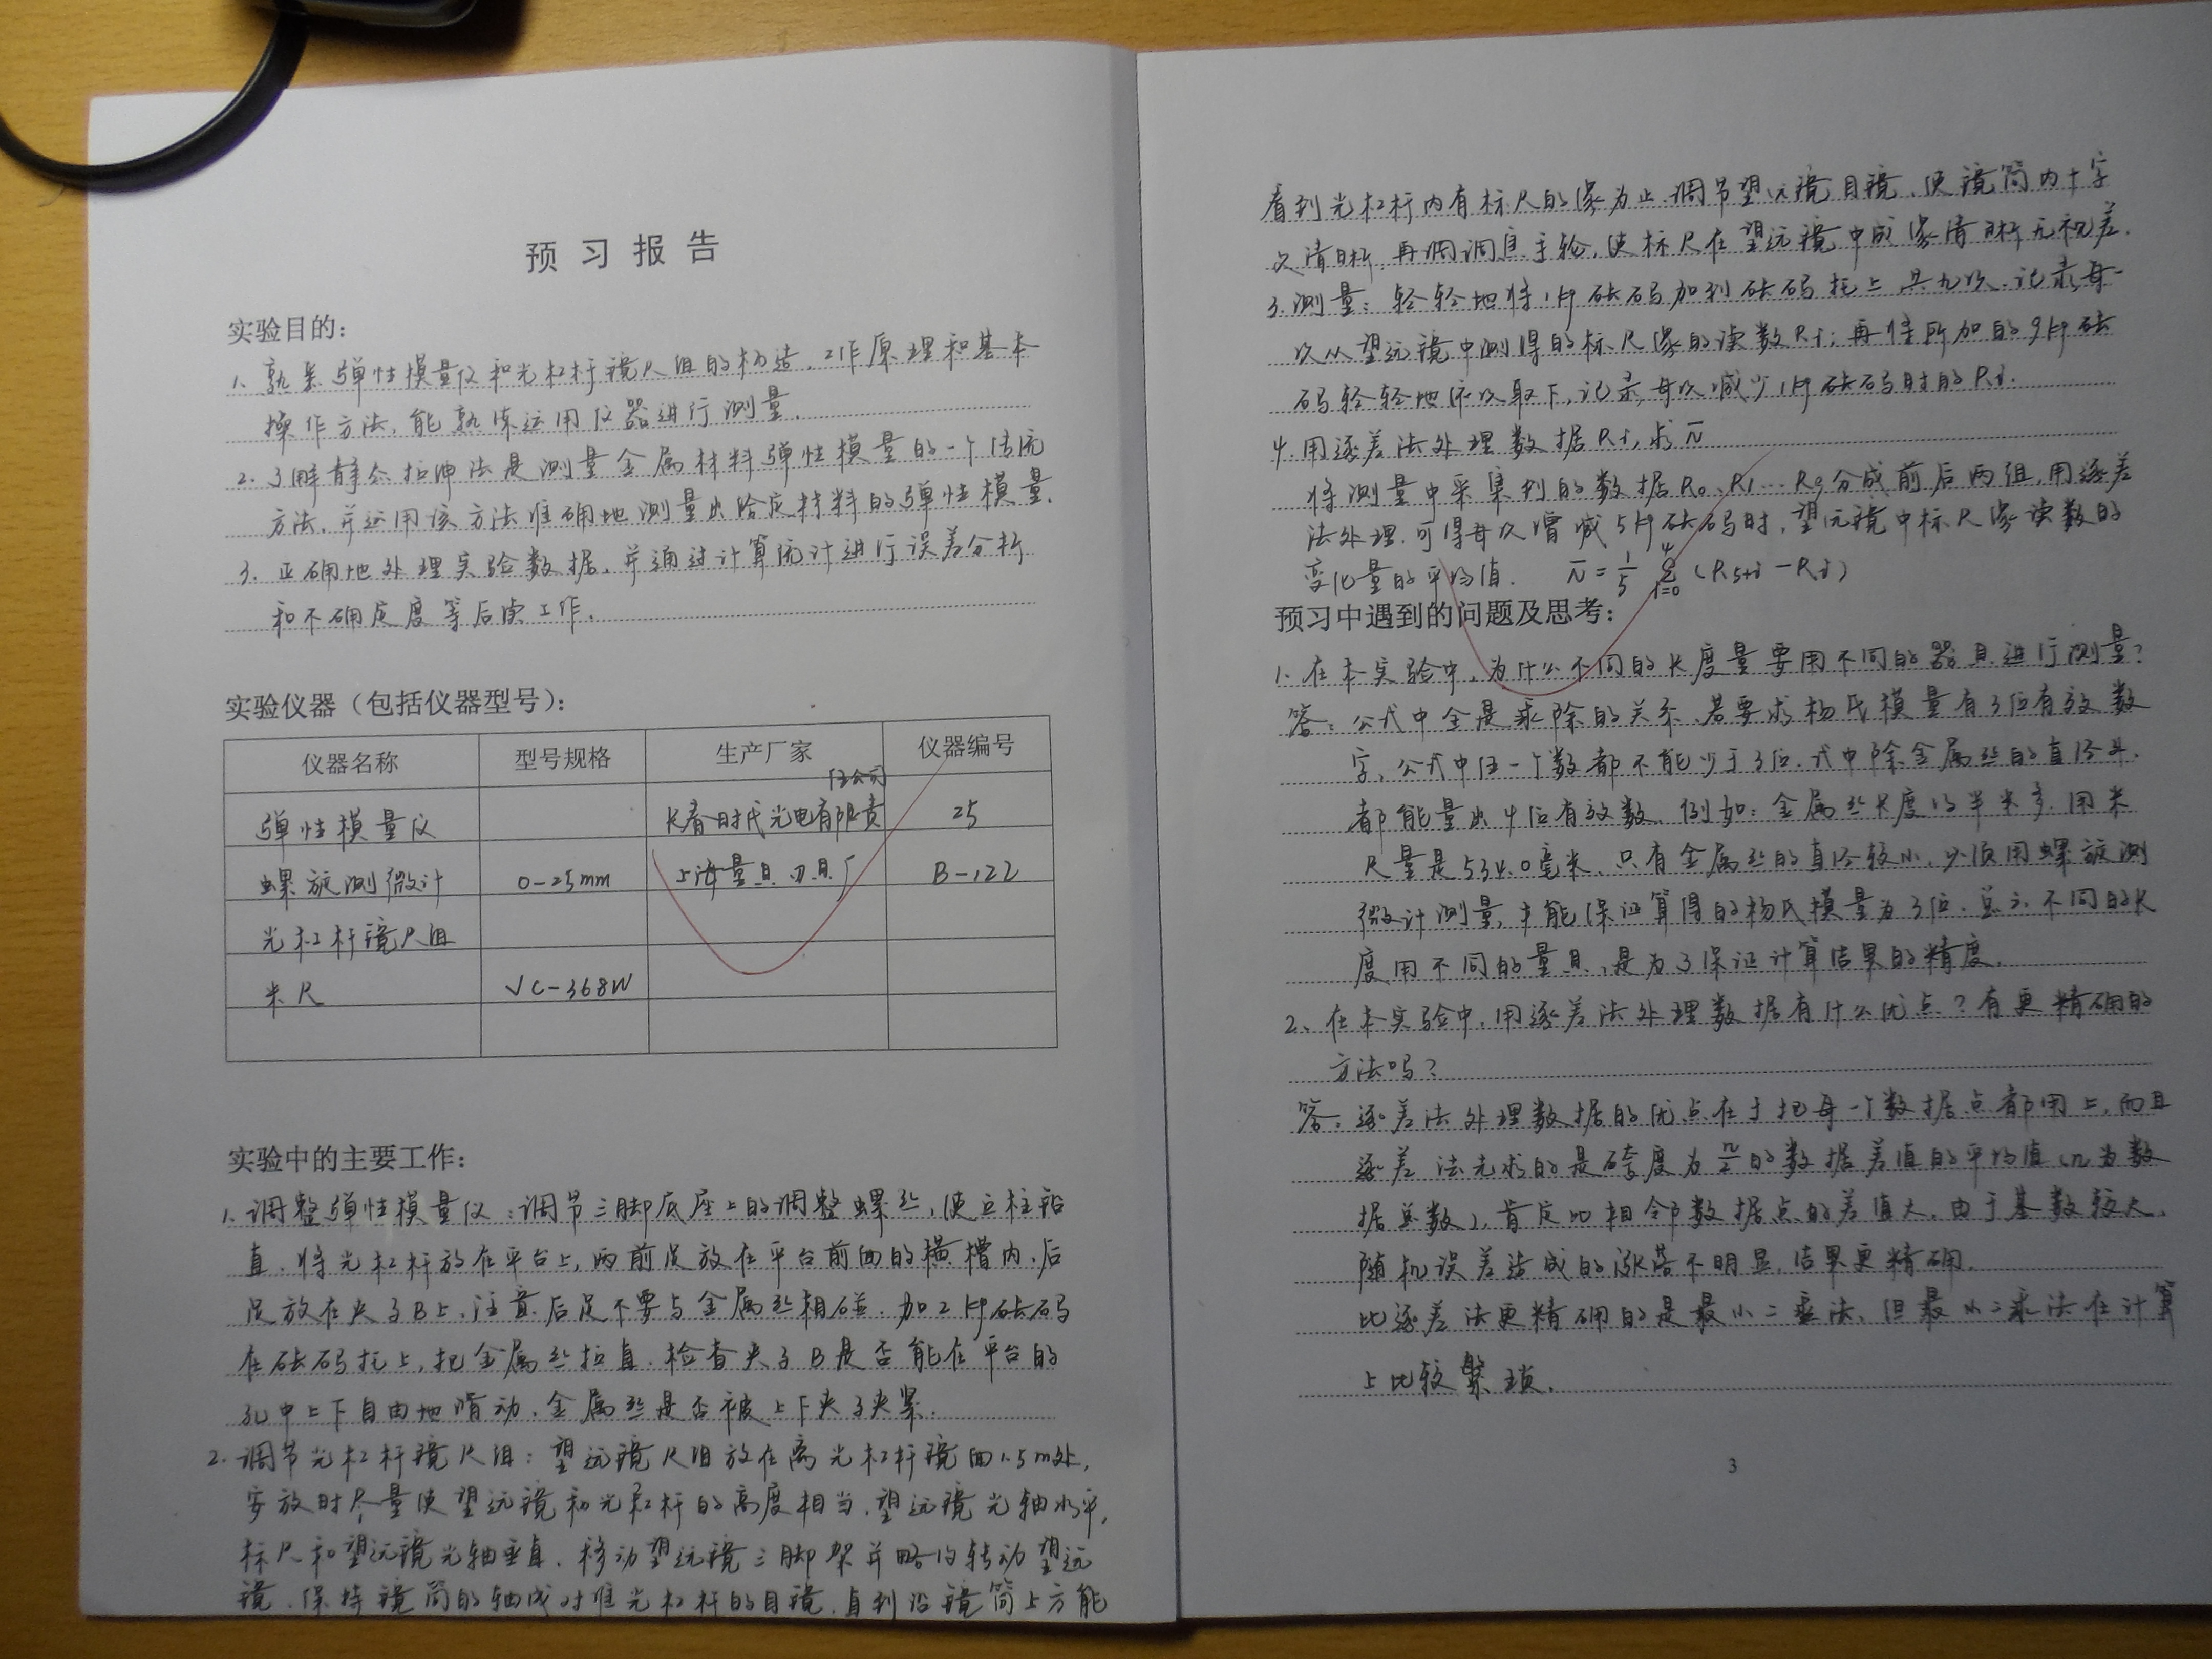 预习报告
实验目的：
1. 熟悉弹性模量仪和光杠杆镜尺组的构造、工作原理和基本
操作方法，能熟练运用仪器进行测量。
2. 了解静态拉伸法是测量金属材料弹性模量的一个传统
方法，并运用该方法准确地测量出给定材料的弹性模量。
3. 正确地处理实验数据，并通过计算统计进行误差分析
和不确定度等后续工作。
实验仪器（包括仪器型号）：
仪器名称 型号规格 生产厂家 仪器编号
弹性模量仪 长春时代光电有限责任公司 25
螺旋测微计 0-25mm 上海量具刃具厂 B-122
光杠杆镜尺组
米尺 VC-368W
实验中的主要工作：
1. 调整弹性模量仪：调节三脚底座上的调整螺丝，使立柱铅
直。将光杠杆放在平台上，两前足放在平台前面的横槽内，后
足放在夹子B上，注意后足不要与金属丝相碰。加2kg砝码
在砝码托上，把金属丝拉直。检查夹子B是否能在平台的
孔中上下自由地滑动，金属丝是否被上下夹子夹紧。
2. 调节光杠杆镜尺组：望远镜尺组放在离光杠杆镜面1.5m处，
安放时尽量使望远镜和光杠杆的高度相当，望远镜光轴水平，
标尺和望远镜光轴垂直。移动望远镜三脚架并略约转动望远
镜，保持镜筒的轴线对准光杠杆的目镜，直到沿镜筒上方能
看到光杠杆内有标尺的像为止。调节望远镜目镜，使镜筒内十字
叉清晰，再调调焦手轮，使标尺在望远镜中成像清晰无视差。
3. 测量：轻轻地将1kg砝码加到砝码托上，共九次，记录每一
次从望远镜中测得的标尺像的读数Ri；再将所加的9kg砝
码轻轻地依次取下，记录每次减少1kg砝码时的Ri。
4. 用逐差法处理数据Ri，求n̄
将测量中采集到的数据R0、R1…R9分成前后两组，用逐差
法处理，可得每次增减5kg砝码时，望远镜中标尺像读数的
变化量的平均值。 n̄ = 1/5 Σ(i=0→4) (R5+i − Ri)
预习中遇到的问题及思考：
1. 在本实验中，为什么不同的长度量要用不同的器具进行测量？
答：公式中全是乘除的关系，若要求杨氏模量有3位有效数
字，公式中任一个数都不能少于3位。式中除金属丝的直径外，
都能量出4位有效数，例如：金属丝长度约半米多，用米
尺量是534.0毫米，只有金属丝的直径较小，必须用螺旋测
微计测量，才能保证算得的杨氏模量为3位。总之，不同的长
度用不同的量具，是为了保证计算结果的精度。
2、在本实验中，用逐差法处理数据有什么优点？有更精确的
方法吗？
答：逐差法处理数据的优点在于把每一个数据点都用上，而且
逐差法先求的是跨度为n/2的数据差值的平均值（n为数
据总数），肯定比相邻数据点的差值大。由于基数较大，
随机误差造成的涨落不明显，结果更精确。
比逐差法更精确的是最小二乘法，但最小二乘法在计算
上比较繁琐。
3